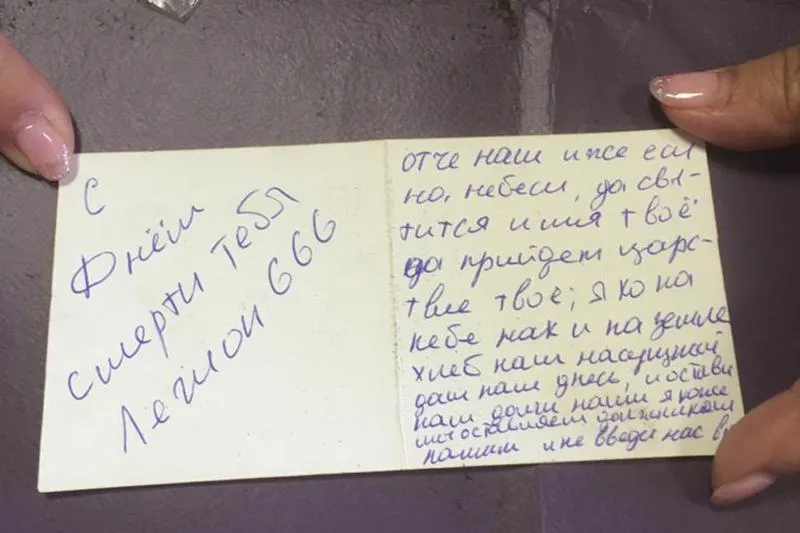 С
Днём
смерти тебя
Легион 666
отче наш иже еси
на, небеси, да свя-
тится имя твоё
да прийдет царс-
твие твоё; Яко на
небе как и на земле
хлеб наш насущный
даш наш днесь, и остави
нам долги наши якоже
мы оставляем должникам
нашим и не введи нас в